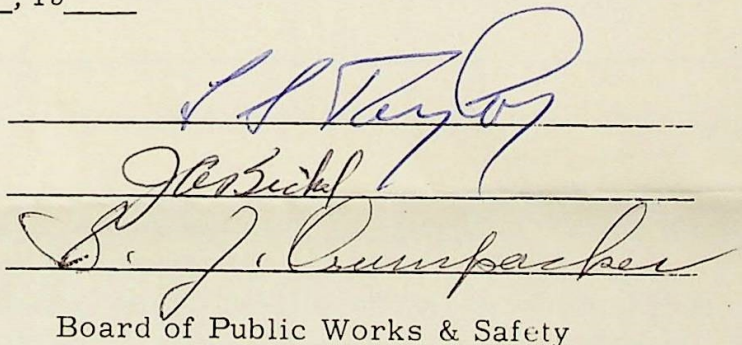 , 19
L S Taylor
J A Bickel
S. J. Crumpacker
Board of Public Works & Safety